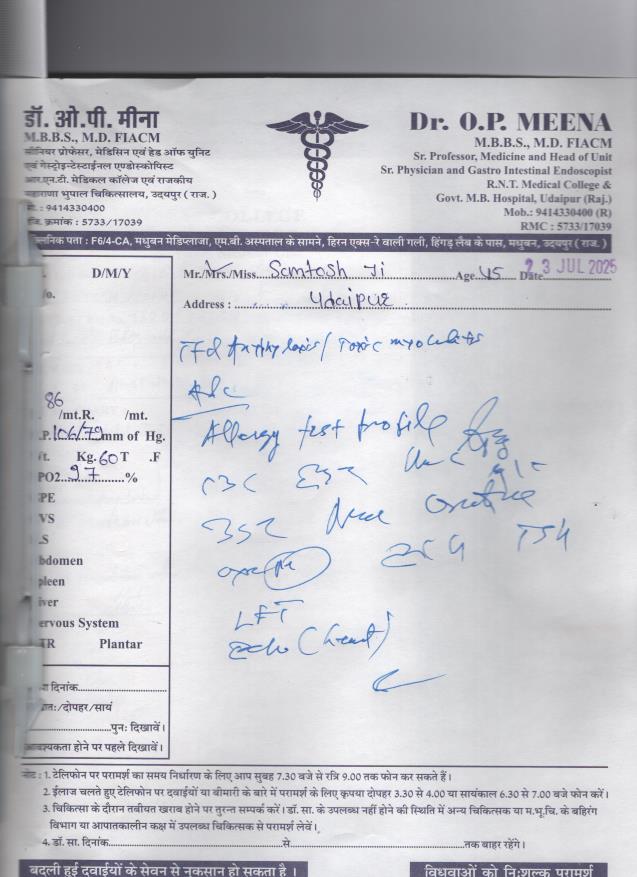 डॉ. ओ.पी. मीना
M.B.B.S., M.D. FIACM
सीनियर प्रोफेसर, मेडिसिन एवं हेड ऑफ युनिट
एवं गेस्ट्रोइन्टेस्टाईनल एण्डोस्कोपिस्ट
आर.एन.टी. मेडिकल कॉलेज एवं राजकीय
महाराणा भुपाल चिकित्सालय, उदयपुर ( राज. )
मो. : 9414330400
जि. क्रमांक : 5733/17039
Dr. O.P. MEENA
M.B.B.S., M.D. FIACM
Sr. Professor, Medicine and Head of Unit
Sr. Physician and Gastro Intestinal Endoscopist
R.N.T. Medical College &
Govt. M.B. Hospital, Udaipur (Raj.)
Mob.: 9414330400 (R)
RMC : 5733/17039
क्लिनिक पता : F6/4-CA, मधुबन मेडिप्लाजा, एम.बी. अस्पताल के सामने, हिरन एक्स-रे वाली गली, हिंगड़ लैब के पास, मधुबन, उदयपुर ( राज. )
D/M/Y
Mr./Mrs./Miss. Santosh Ji Age 45 Date 23 JUL 2025
Address : Udaipur
Toxic
Adv
86
/mt.R. /mt.
.P. 106/79 mm of Hg.
Kg. 60 T .F
PO2 97 %
PE
VS
.S
bdomen
pleen
iver
ervous System
TR Plantar
Allergy test profile
CBC ESR
TSH
LFT
Echo (heart)
दिनांक
/दोपहर/सायं
पुनः दिखावें।
आवश्यकता होने पर पहले दिखावें।
नोट : 1. टेलिफोन पर परामर्श का समय निर्धारण के लिए आप सुबह 7.30 बजे से रात्रि 9.00 तक फोन कर सकते हैं।
2. ईलाज चलते हुए टेलिफोन पर दवाईयों या बीमारी के बारे में परामर्श के लिए कृपया दोपहर 3.30 से 4.00 या सायंकाल 6.30 से 7.00 बजे फोन करें।
3. चिकित्सा के दौरान तबीयत खराब होने पर तुरन्त सम्पर्क करें। डॉ. सा. के उपलब्ध नहीं होने की स्थिति में अन्य चिकित्सक या म.भू.चि. के बहिरंग
विभाग या आपातकालीन कक्ष में उपलब्ध चिकित्सक से परामर्श लेवें।
4. डॉ. सा. दिनांक से तक बाहर रहेंगे।
बदली हुई दवाईयों के सेवन से नुकसान हो सकता है।
विधवाओं को निःशुल्क परामर्श